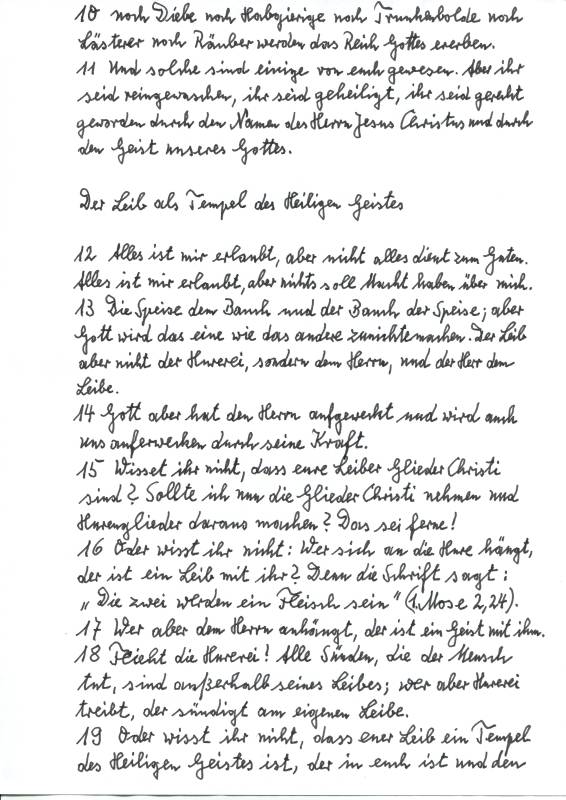 10 noch Diebe noch Habgierige noch Trunkenbolde noch
Lästerer noch Räuber werden das Reich Gottes ererben.
11 Und solche sind einige von euch gewesen. Aber ihr
seid reingewaschen, ihr seid geheiligt, ihr seid gerecht
geworden durch den Namen des Herrn Jesus Christus und durch
den Geist unseres Gottes.
Der Leib als Tempel des Heiligen Geistes
12 Alles ist mir erlaubt, aber nicht alles dient zum Guten.
Alles ist mir erlaubt, aber nichts soll Macht haben über mich.
13 Die Speise dem Bauch und der Bauch der Speise; aber
Gott wird das eine wie das andere zunichtemachen. Der Leib
aber nicht der Hurerei, sondern dem Herrn, und der Herr dem
Leibe.
14 Gott aber hat den Herrn aufgeweckt und wird auch
uns auferwecken durch seine Kraft.
15 Wisset ihr nicht, dass eure Leiber Glieder Christi
sind? Sollte ich nun die Glieder Christi nehmen und
Hurenglieder daraus machen? Das sei ferne!
16 Oder wisst ihr nicht: Wer sich an die Hure hängt,
der ist ein Leib mit ihr? Denn die Schrift sagt:
„Die zwei werden ein Fleisch sein" (1. Mose 2,24).
17 Wer aber dem Herrn anhängt, der ist ein Geist mit ihm.
18 Flieht die Hurerei! Alle Sünden, die der Mensch
tut, sind außerhalb seines Leibes; wer aber Hurerei
treibt, der sündigt am eigenen Leibe.
19 Oder wisst ihr nicht, dass euer Leib ein Tempel
des Heiligen Geistes ist, der in euch ist und den